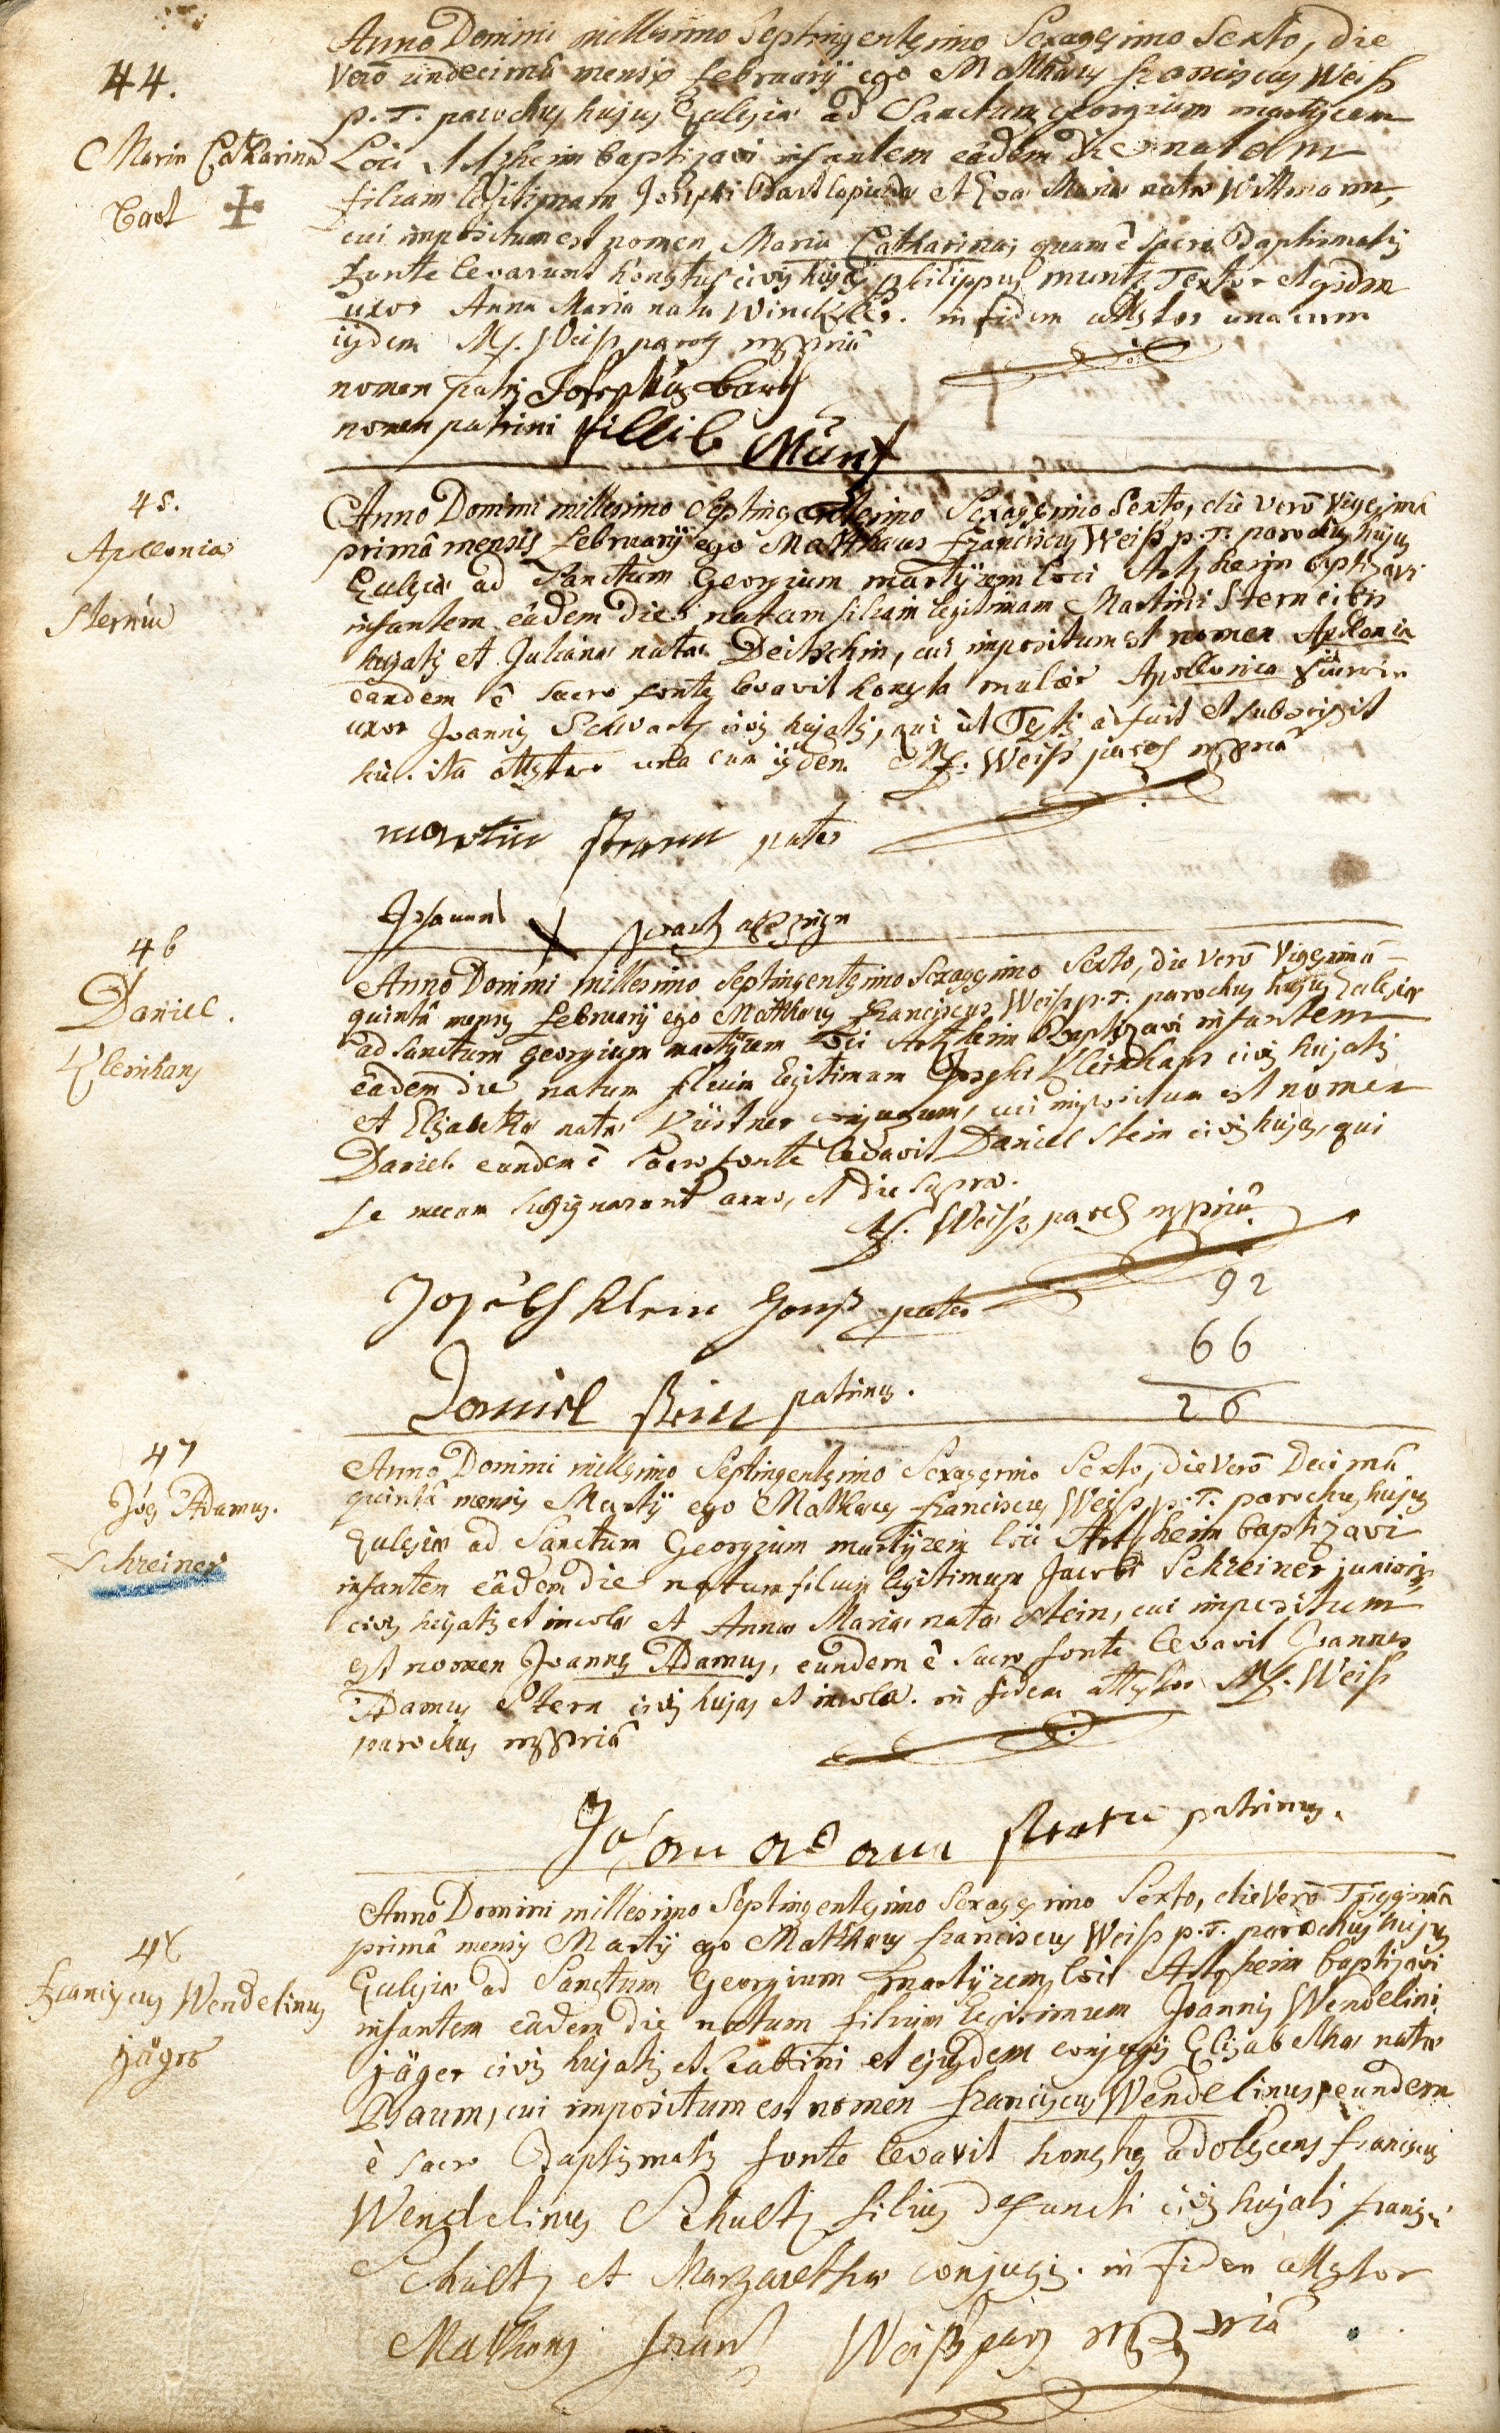 44.
Maria Catharina
Bart
Anno Domini millesimo Septingentesimo Sexagesimo Sexto, die
Verò undecimâ mensis February ego Matthæus Franciscus Weiß
p. T. parochus hujus Ecclesiæ ad Sanctum georgium martyrem
Loci Artzheim baptizavi infantem eâdem die natam
filiam legitimam Josephi Bart et Evæ Mariæ natæ Wittmann,
cui impositum est nomen Maria Catharina, quam è sacro Baptismatis
fonte levarunt honestus civis hujas philippus muntz Textor et ejusdem
uxor Anna Maria nata Winckler. in fidem attestor una cum
iisdem M. f. Weiß paroch mppriâ
nomen patris Josephus barth
nomen patrini fillib Müntz
45.
Apollonia
Sternin
Anno Domini millesimo Septingentesimo Sexagesimo Sexto, die Verò Vigesimâ
primâ mensis february ego Matthæus franciscus Weiß p. T. parochus hujus
Ecclesiæ ad Sanctum Georgium martÿrem loci Artzheim baptizavi
infantem eâdem die natam filiam legitimam Martini Stern civis
hujatis et Julianæ natæ Deitschin, cui impositum est nomen Apollonia
eandem è sacro fonte levavit honesta mulier Apollonia
uxor Joannis Schwartz civis hujatis, qui ut Testis adfuit et subscripsit
hic. ita attestor una cum iisdem M. f. Weiß paroch mppriâ
martin stern pater
Johannes X
46
Daniel.
Kleinhans
Anno Domini millesimo Septingentesimo Sexagesimo Sexto, die Verò Vigesimâ
quintâ mensis february ego Matthæus franciscus Weiß p. T. parochus hujus Ecclesiæ
ad Sanctum georgium martÿrem loci Artzheim Baptizavi infantem
eâdem die natum filium legitimum Josephi Kleinhans civis hujatis
et Elisabethæ natæ Küstner conjugum, cui impositum est nomen
Daniel. eundem è sacro fonte levavit Daniel Stein civis hujas, qui
se mecum subsignarunt anno, et die supra.
M. f. Weiß paroch mppriâ
92
Josebh Klein Hanß pater
66
26
Daniel stein patrinus.
47
Joës Adamus.
Schreiner
Anno Domini millesimo Septingentesimo Sexagesimo Sexto, die Verò Decimâ
quintâ mensis Martÿ ego Matthæus franciscus Weiß p. T. parochus hujus
Ecclesiæ ad Sanctum Georgium martÿrem loci Artzheim baptizavi
infantem eâdem die natum filium legitimum Jacobi Schreiner junioris
civis hujatis et incolæ et Annæ Mariæ natæ Stein, cui impositum
est nomen Joannes Adamus, eundem è sacro fonte levavit Joannes
Adamus Stern civis hujas et incola. in fidem attestor M. f. Weiß
parochus mppriâ
Johan adam stern patrinus.
48
Franciscus Wendelinus
jäger
Anno Domini millesimo Septingentesimo Sexagesimo Sexto, die Verò Trigesimâ
primâ mensis Martÿ ego Matthæus franciscus Weiß p. T. parochus hujus
Ecclesiæ ad Sanctum Georgium martÿrem loci Artzheim baptizavi
infantem eâdem die natum filium legitimum Joannis Wendelini
jäger civis hujatis et Scabini et ejusdem conjugis Elisabethæ natæ
Baum, cui impositum est nomen franciscus Wendelinus, eundem
è sacro Baptismatis fonte levavit honestus adolescens franciscus
Wendelinus Schultz filius defuncti civis hujatis francisci
Schultz et Margarethæ conjugis. in fidem attestor
Matthæus franc Weiß paroch mppriâ